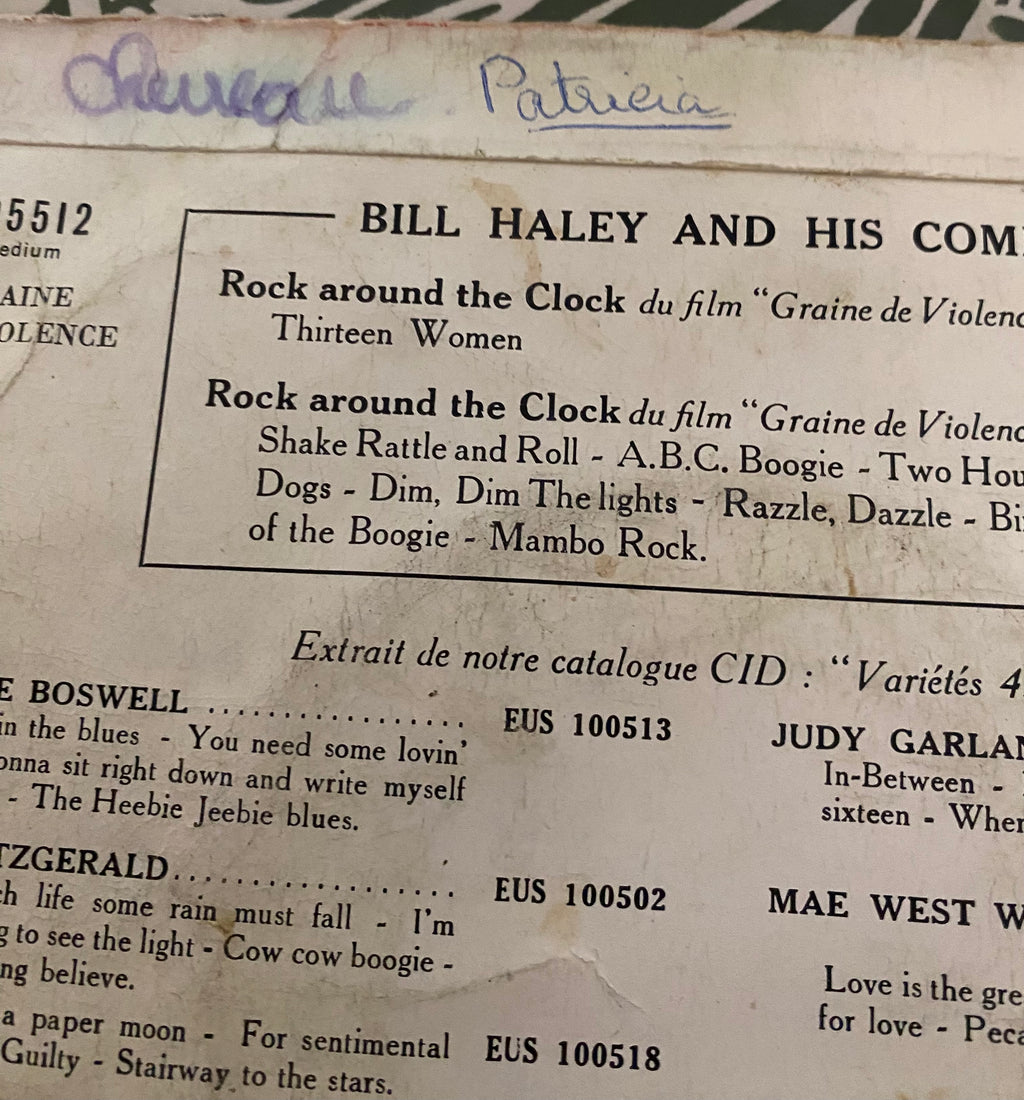 Patricia
5512
edium
AINE
OLENCE
BILL HALEY AND HIS COM
Rock around the Clock du film “Graine de Violenc
Thirteen Women
Rock around the Clock du film “Graine de Violenc
Shake Rattle and Roll - A.B.C. Boogie - Two Hou
Dogs - Dim, Dim The lights - Razzle, Dazzle - Bi
of the Boogie - Mambo Rock.
Extrait de notre catalogue CID : “Variétés 4
E BOSWELL .................. EUS 100513
in the blues - You need some lovin’
onna sit right down and write myself
- The Heebie Jeebie blues.
TZGERALD.................. EUS 100502
ch life some rain must fall - I’m
g to see the light - Cow cow boogie -
ng believe.
a paper moon - For sentimental EUS 100518
Guilty - Stairway to the stars.
JUDY GARLAN
In-Between -
sixteen - When
MAE WEST W
Love is the gre
for love - Peca